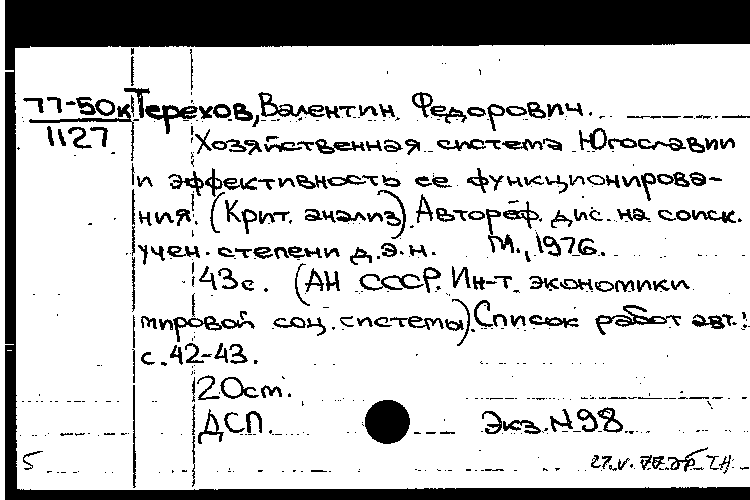 77-50к Терехов, Валентин Федорович.
1127 Хозяйственная система Югославии
и эффективность ее функционирова-
ния. (Крит. анализ). Автореф. дис. на соиск.
учен. степени д.э.н. М., 1976.
43с. (АН СССР. Ин-т экономики
мировой соц. системы). Список работ авт.:
с. 42-43.
20см.
ДСП. Экз. N98
5 27.V.77